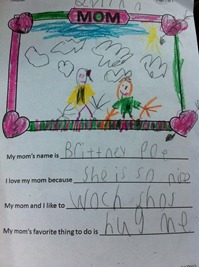 MOM
My mom's name is Brittney Poe
I love my mom because she is so nice
My mom and I like to Woch shos
My mom's favorite thing to do is hug me